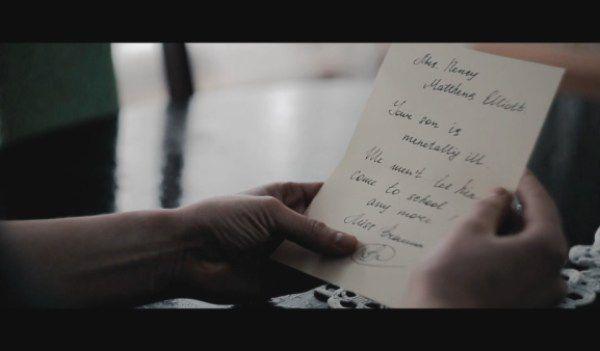 Mrs. Nency
Matthews Elliott.
Your son is
menetally ill.
We won't let him
come to school
any more
Miss